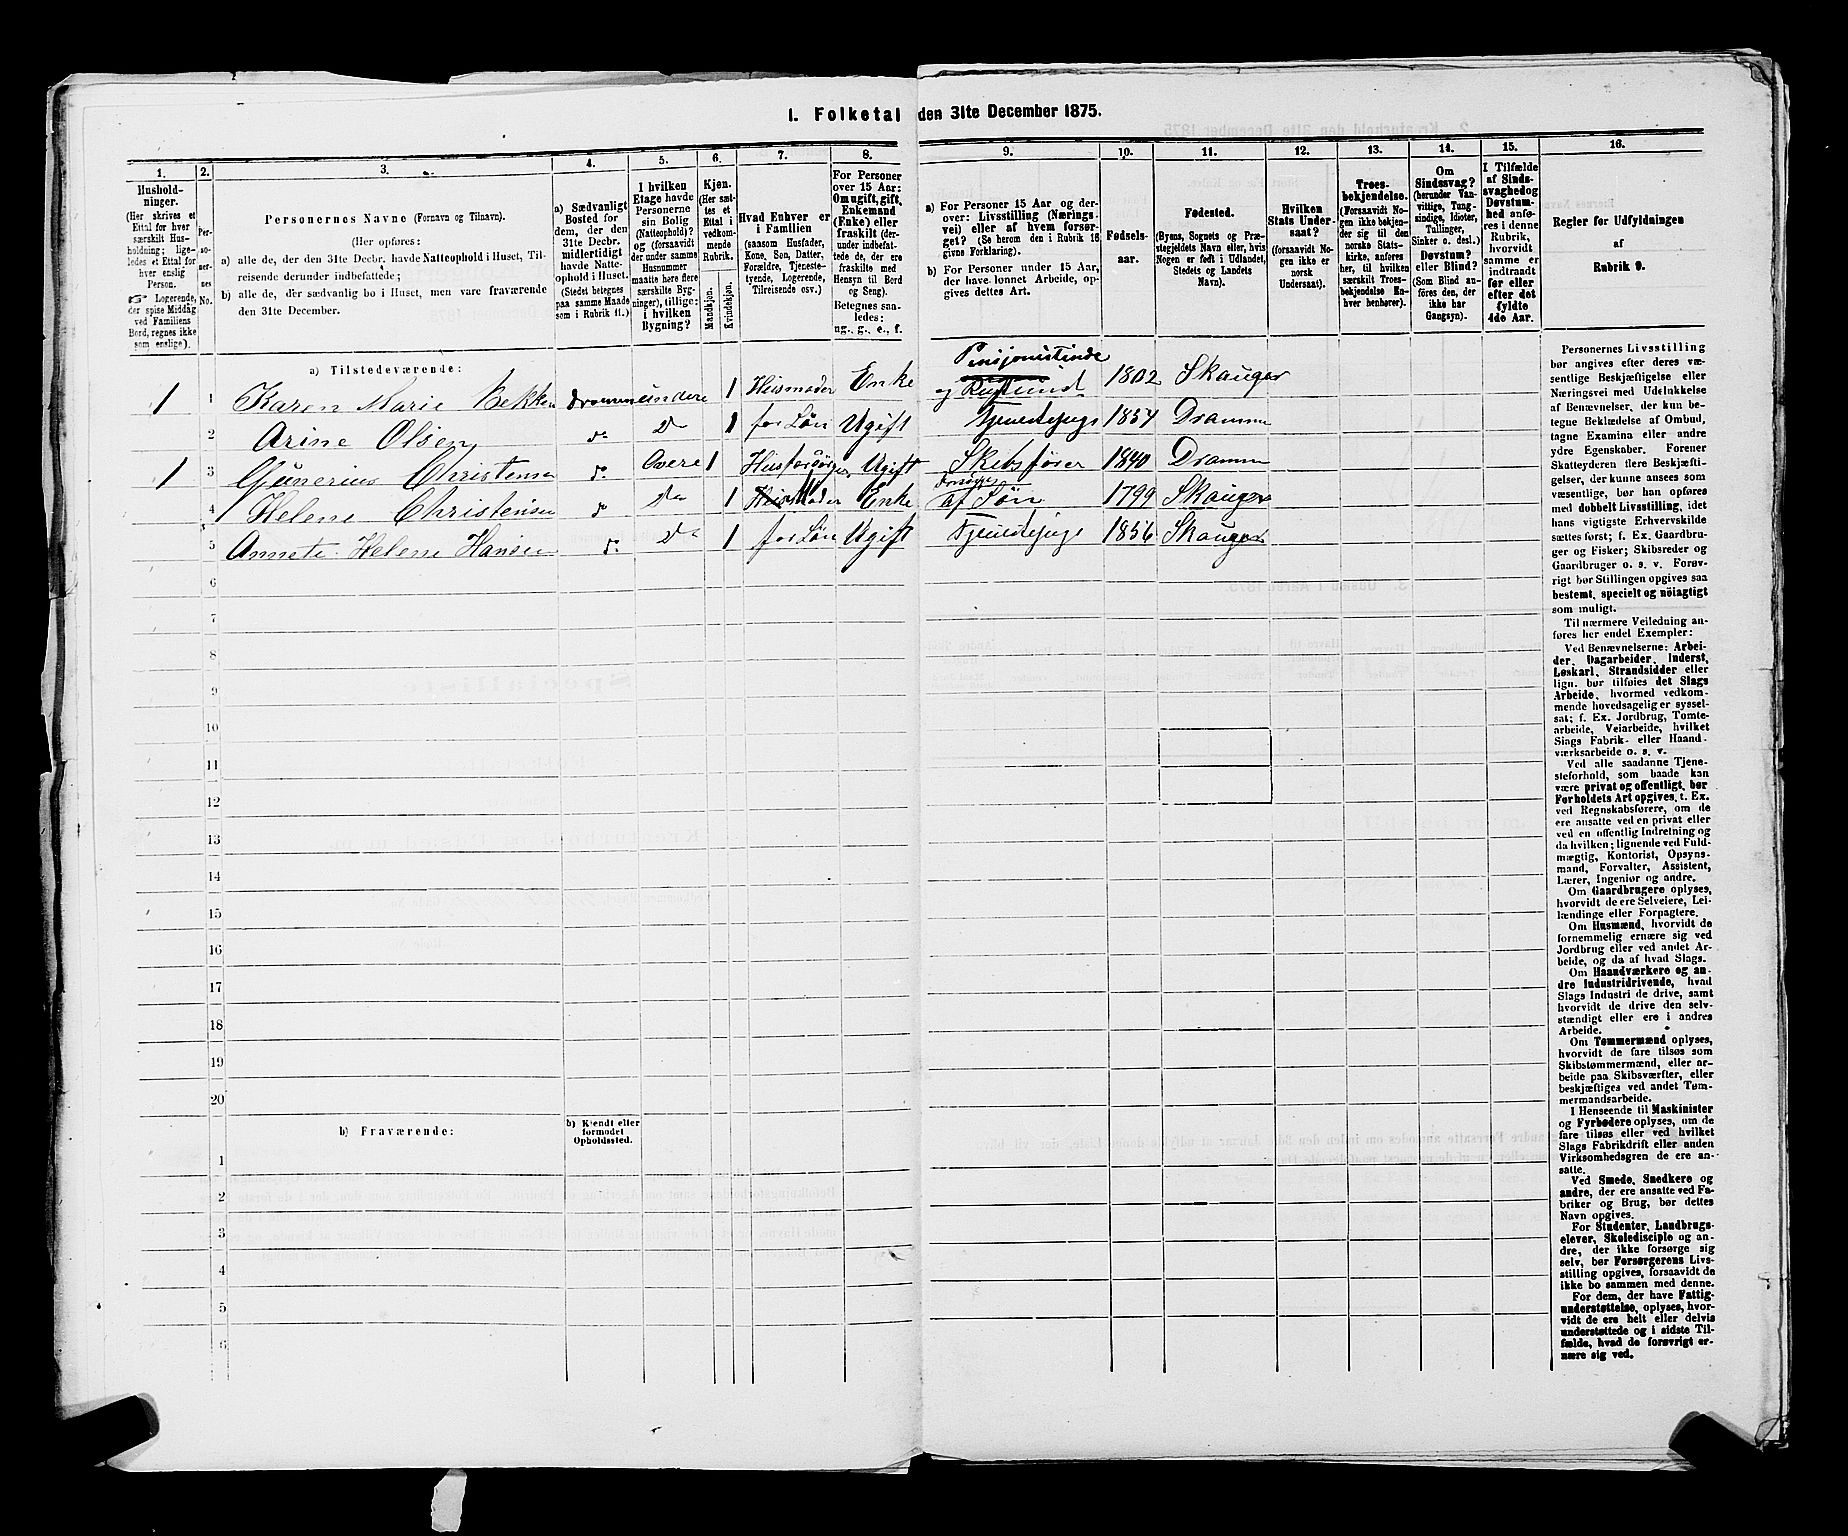 I. Folketal den 31te December 1875.
1.
Hushold-
ninger.
(Her skrives et
Ettal for hver
særskilt Hus-
holdning; lige-
ledes et Ettal for
hver enslig
Person.
☞ Logerende,
der spise Middag
ved Familiens
Bord, regnes ikke
som enslige).
2.
Per-
so-
ner-
nes
No.
3.
Personernes Navne (Fornavn og Tilnavn).
(Her opføres:
a) alle de, der den 31te Decbr. havde Natteophold i Huset, Til-
reisende derunder indbefattede;
b) alle de, der sædvanlig bo i Huset, men vare fraværende
den 31te December.
4.
a) Sædvanligt
Bosted for
dem, der den
31te Decbr.
midlertidigt
havde Natte-
ophold i Huset.
(Stedet betegnes
paa samme Maade
som i Rubrik 11.)
5.
I hvilken
Etage havde
Personerne
sin Bolig
(Natteophold)?
og (forsaavidt
der under samme
Husnummer
maatte høre flere
særskilte Byg-
ninger), tillige:
i hvilken
Bygning?
6.
Kjøn.
(Her sæt-
tes et
Ettal i
vedkom-
mende
Rubrik.
Mandkjøn.
Kvindekjøn.
7.
Hvad Enhver er
i Familien
(saasom Husfader,
Kone, Søn, Datter,
Forældre, Tjeneste-
tyende, Logerende,
Tilreisende osv.)
8.
For Personer
over 15 Aar:
Om ugift, gift,
Enkemand
(Enke) eller
fraskilt (der-
under indbefat-
tede de, der ere
fraskilte med
Hensyn til Bord
og Seng).
Betegnes saa-
ledes:
ug., g., e., f.
9.
a) For Personer 15 Aar og der-
over: Livsstilling (Nærings-
vei) eller af hvem forsør-
get? (Se herom den i Rubrik 16
givne Forklaring).
b) For Personer under 15 Aar,
der have lønnet Arbeide, op-
gives dettes Art.
10.
Fødsels-
aar.
11.
Fødested.
(Byens, Sognets og Præ-
stegjeldets Navn eller, hvis
Nogen er født i Udlandet,
Stedets og Landets
Navn).
12.
Hvilken
Stats Under-
saat?
(forsaavidt No-
gen ikke er
norsk
Undersaat).
13.
Troes-
bekjendelse.
(Forsaavidt No-
gen ikke bekjen-
der sig til den
norske Stats-
kirke, anføres
her, til hvilken
særskilt Troes-
bekjendelse En-
hver henhører).
14.
Om
Sindssvag?
(herunder Van-
vittige, Tung-
sindige, Idioter,
Tullinger,
Sinker o. desl.)
Døvstum?
eller Blind?
(Som Blind an-
føres den, der
ikke har
Gangsyn).
15.
I Tilfælde
af Sinds-
svaghed og
Døvstum-
hed anfø-
res i denne
Rubrik,
hvorvidt
samme er
indtraadt
før eller
efter det
fyldte
4de Aar.
16.
Regler for Udfyldningen
af
Rubrik 9.
a) Tilstedeværende:
1 1 Karen Marie Bekken Drammen undere 1 Husmoder Enke Pensjonistinde og 1802 Skauger
2 Arine Olsen do Do 1 for Løn Ugift Tjenestepige 1854 Drammn
1 3 Gunerius Christensen do Overe 1 Husforsørger Ugift Skibsfører 1840 Drammn
4 Helene Christensen do Do 1 Moder Enke Forsørges af Søn 1799 Skauger
5 Annete Helene Hansen do Do 1 for Løn Ugift Tjenestepige 1856 Skauger
6
7
8
9
10
11
12
13
14
15
16
17
18
19
20
b) Fraværende:
b) Kjendt eller
formodet
Opholdssted.
1
2
3
4
5
6
Personernes Livsstilling
bør angives efter deres væ-
sentlige Beskjæftigelse eller
Næringsvei med Udelukkelse
af Benævnelser, der kun be-
tegne Beklædelse af Ombud,
tagne Examina eller andre
ydre Egenskaber. Forener
Skatteyderen flere Beskjæfti-
gelser, der kunne ansees som
væsentlige, bør han opføres
med dobbelt Livsstilling, idet
hans vigtigste Erhvervskilde
sættes først; f. Ex. Gaardbru-
ger og Fisker; Skibsreder og
Gaardbruger o. s. v. Forøv-
rigt bør Stillingen opgives saa
bestemt, specielt og nöiagtigt
som muligt.
Til nærmere Veiledning an-
føres her endel Exempler:
Ved Benævnelserne: Arbei-
der, Dagarbeider, Inderst,
Løskarl, Strandsidder eller
lign. bør tilføies det Slags
Arbeide, hvormed vedkom-
mende hovedsagelig er syssel-
sat; f. Ex. Jordbrug, Tomte-
arbeide, Veiarbeide, hvilket
Slags Fabrik- eller Haand-
værksarbeide o. s. v.
Ved alle saadanne Tjene-
steforhold, som baade kan
være privat og offentligt, bør
Forholdets Art opgives, t. Ex.
ved Regnskabsførere, om de
ere ansatte ved en privat eller
ved en offentlig Indretning og
da hvilken; lignende ved Fuld-
mægtig, Kontorist, Opsyns-
mand, Forvalter, Assistent,
Lærer, Ingeniør og andre.
Om Gaardbrugere oplyses,
hvorvidt de ere Selveiere, Lei-
lændinge eller Forpagtere.
Om Husmænd, hvorvidt de
fornemmelig ernære sig ved
Jordbrug eller ved andet Ar-
beide, og da af hvad Slags.
Om Haandværkere og an-
dre Industridrivende, hvad
Slags Industri de drive, samt
hvorvidt de drive den selv-
stændigt eller ere i andres
Arbeide.
Om Tømmermænd oplyses,
hvorvidt de fare tilsøs som
Skibstømmermænd, eller ar-
beide paa Skibsværfter, eller
beskjæftiges ved andet Tøm-
mermandsarbeide.
I Henseende til Maskinister
og Fyrbødere oplyses, om de
fare tilsøs eller ved hvilket
Slags Fabrikdrift eller anden
Virksomhedsgren de ere an-
satte.
Ved Smede, Snedkere og
andre, der ere ansatte ved Fa-
briker og Brug, bør dettes
Navn opgives.
For Studenter, Landbrugs-
elever, Skoledisciple og an-
dre, der ikke forsørge sig
selv, bør Forsørgerens Livs-
stilling opgives, forsaavidt de
ikke bo sammen med denne.
For dem, der have Fattig-
understøttelse, oplyses, hvor-
vidt de ere helt eller delvis
understøttede og i sidste Til-
fælde, hvad de forøvrigt er-
nære sig ved.